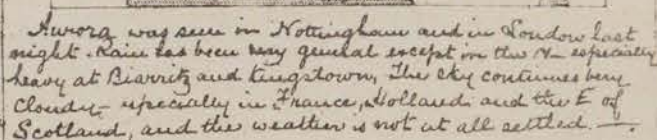 Aurora was seen in Nottingham and in London last
night. Rain has been very general except in the N – especially
heavy at Biarritz and Kingstown, The sky continues very
cloudy – especially in France, Holland and the E of
Scotland, and the weather is not at all settled —.